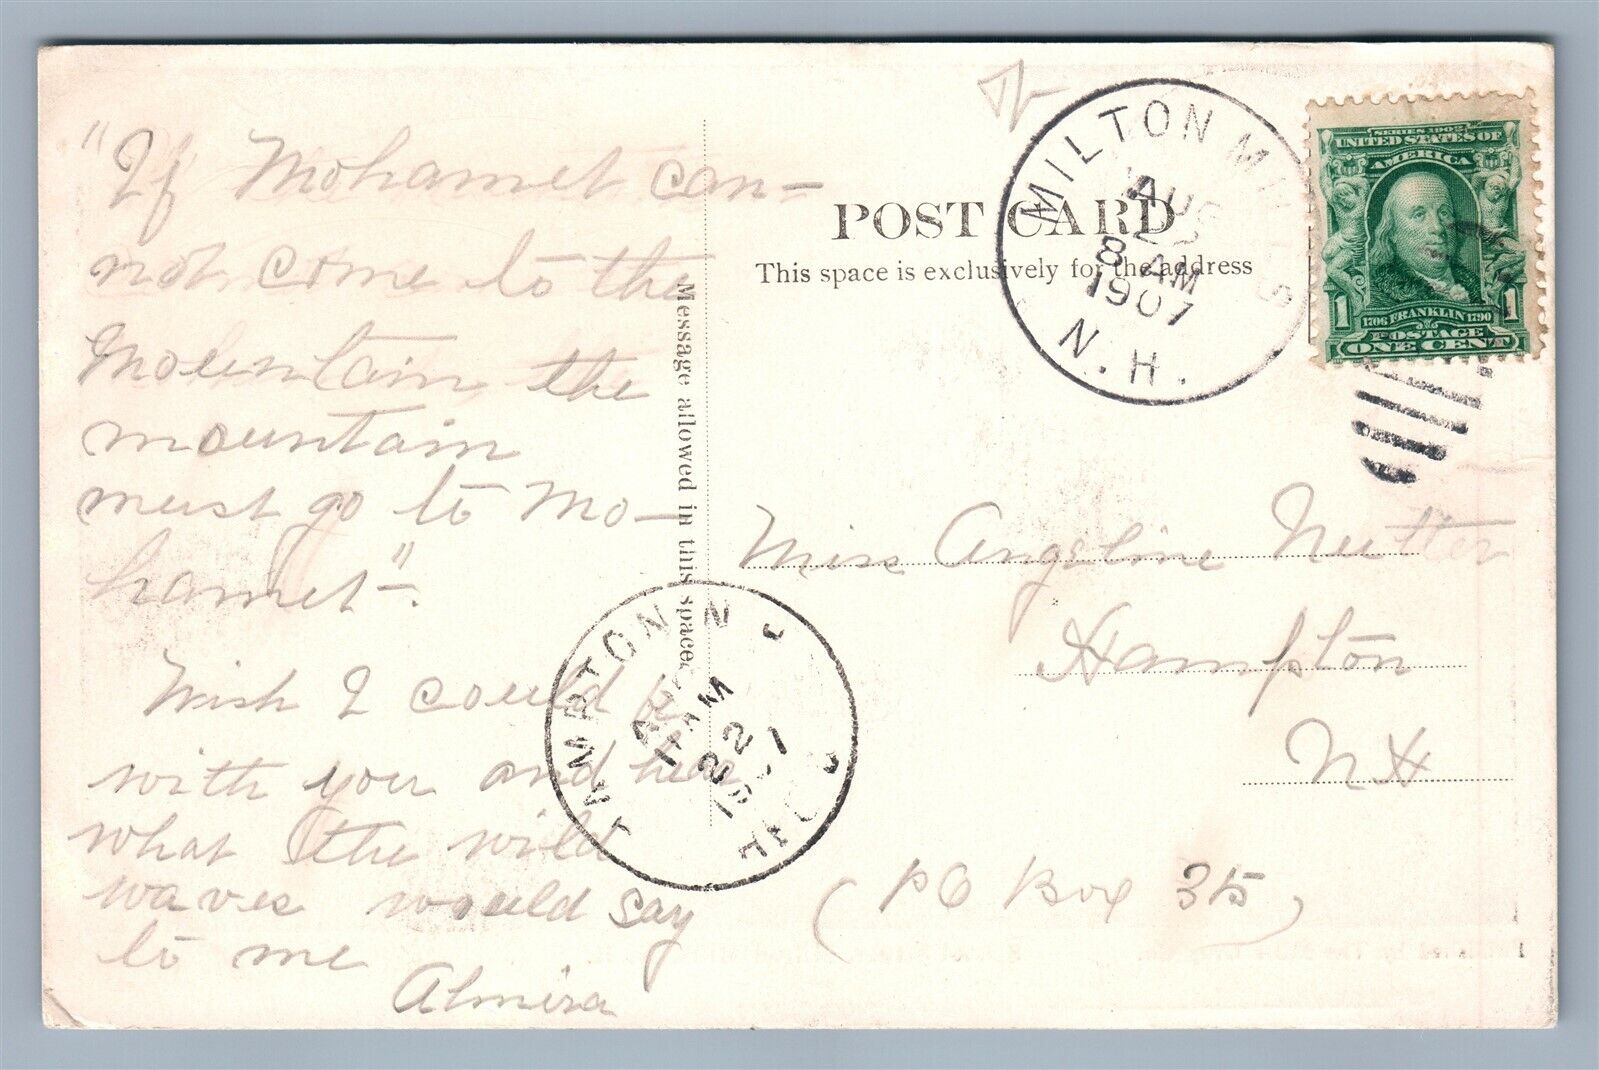 "If Mohamet can-
not come to the
Mountain, the
mountain
must go to Mo-
hamet".
Wish I could be
with you and hear
what the wild
waves would say
to me
Almira
Message allowed in this space
POST CARD
This space is exclusively for the address
MILTON MILLS
AUG
8 AM
1907
N.H.
SERIES 1902
UNITED STATES OF
AMERICA
1 1
1706 FRANKLIN 1790
POSTAGE
ONE CENT
Miss Angeline Nutter
Hampton
NH
(PO Box 315)
HAMPTON N
AUG
11 AM
22
1907
REC'D